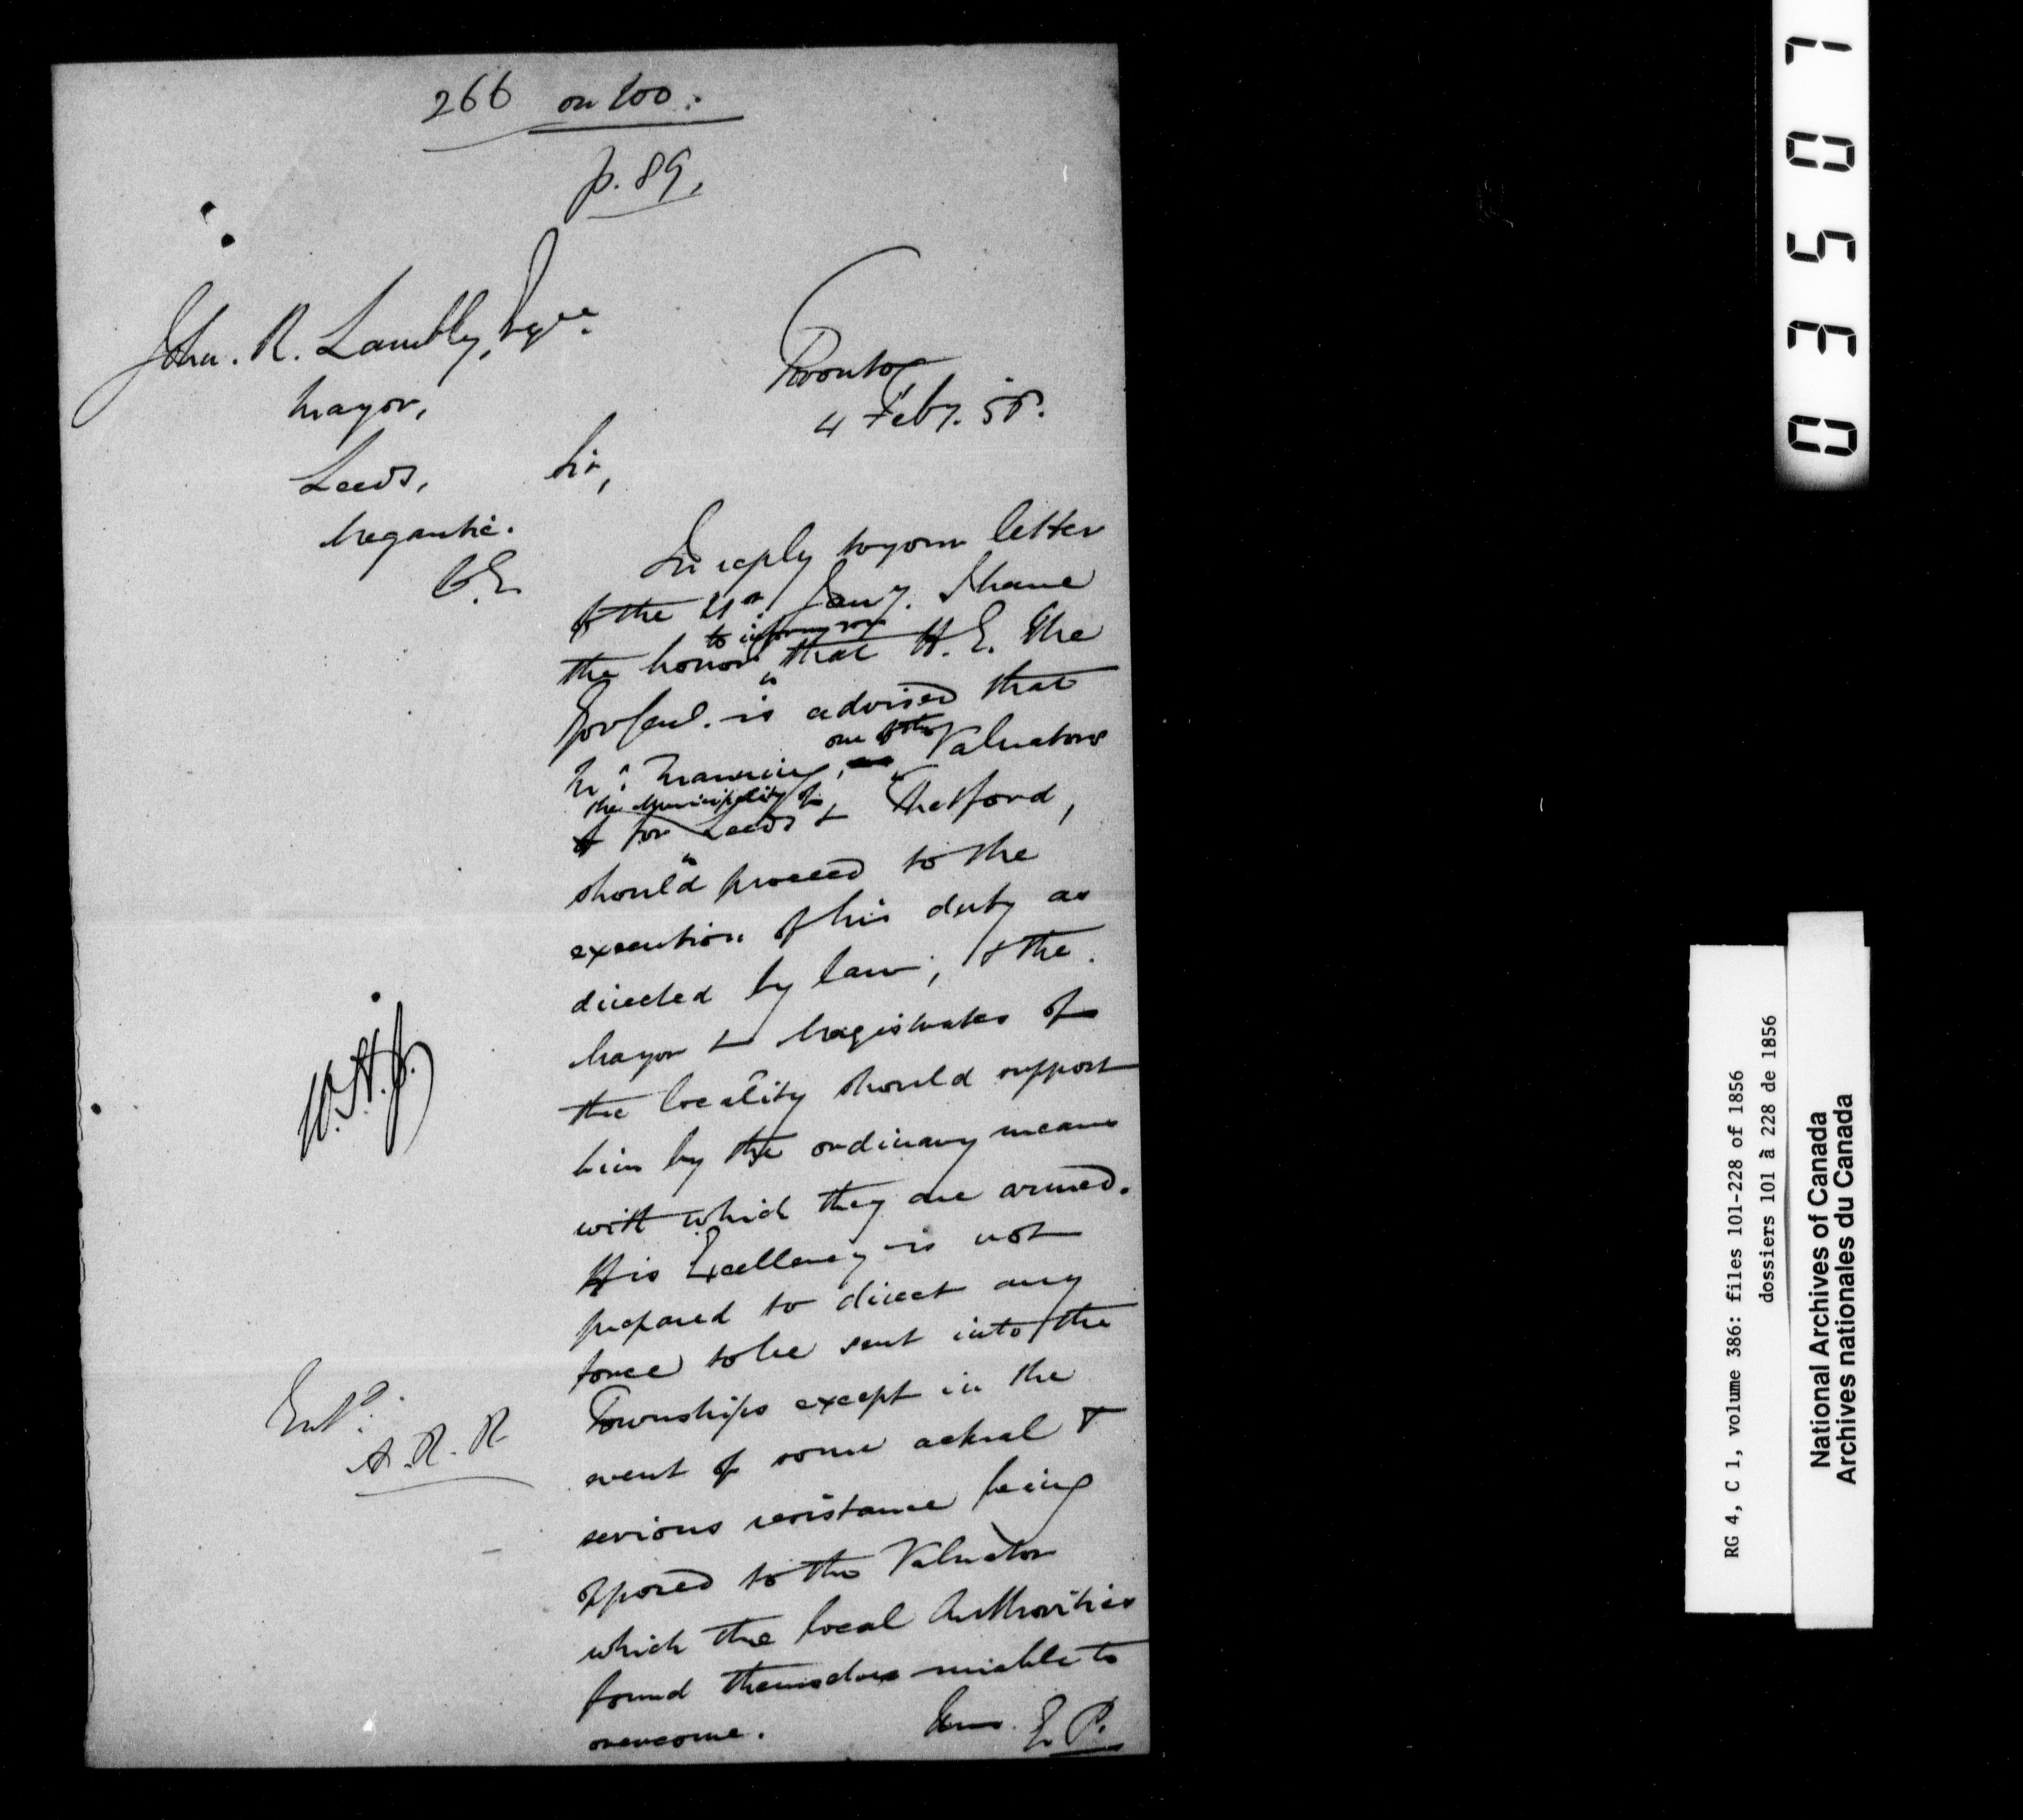 266 on 100.
p. 89.
John. R. Lambly, Esqre.
Mayor,
Leeds,
Megantic.
C.E.
Toronto
4 Feby. 56.
Sir,
In reply to your letter
of the 21st Jany. I have
the honor to inform you that H. E. the
Gov Genl. is advised that
Mr. Manning, one of the Valuators
for the Municipality of Leeds & Thetford,
should proceed to the
execution of his duty as
directed by law; & the
Mayor & Magistrates of
the locality should support
him by the ordinary means
with which they are armed.
His Excellency is not
prepared to direct any
force to be sent into the
Townships except in the
event of some actual &
serious resistance being
opposed to the Valuator
which the local Authorities
found themselves unable to
overcome.
E. P.
W. H. J.
Entd.
A. R. R.
03507
RG 4, C 1, volume 386: files 101-228 of 1856
dossiers 101 à 228 de 1856
National Archives of Canada
Archives nationales du Canada